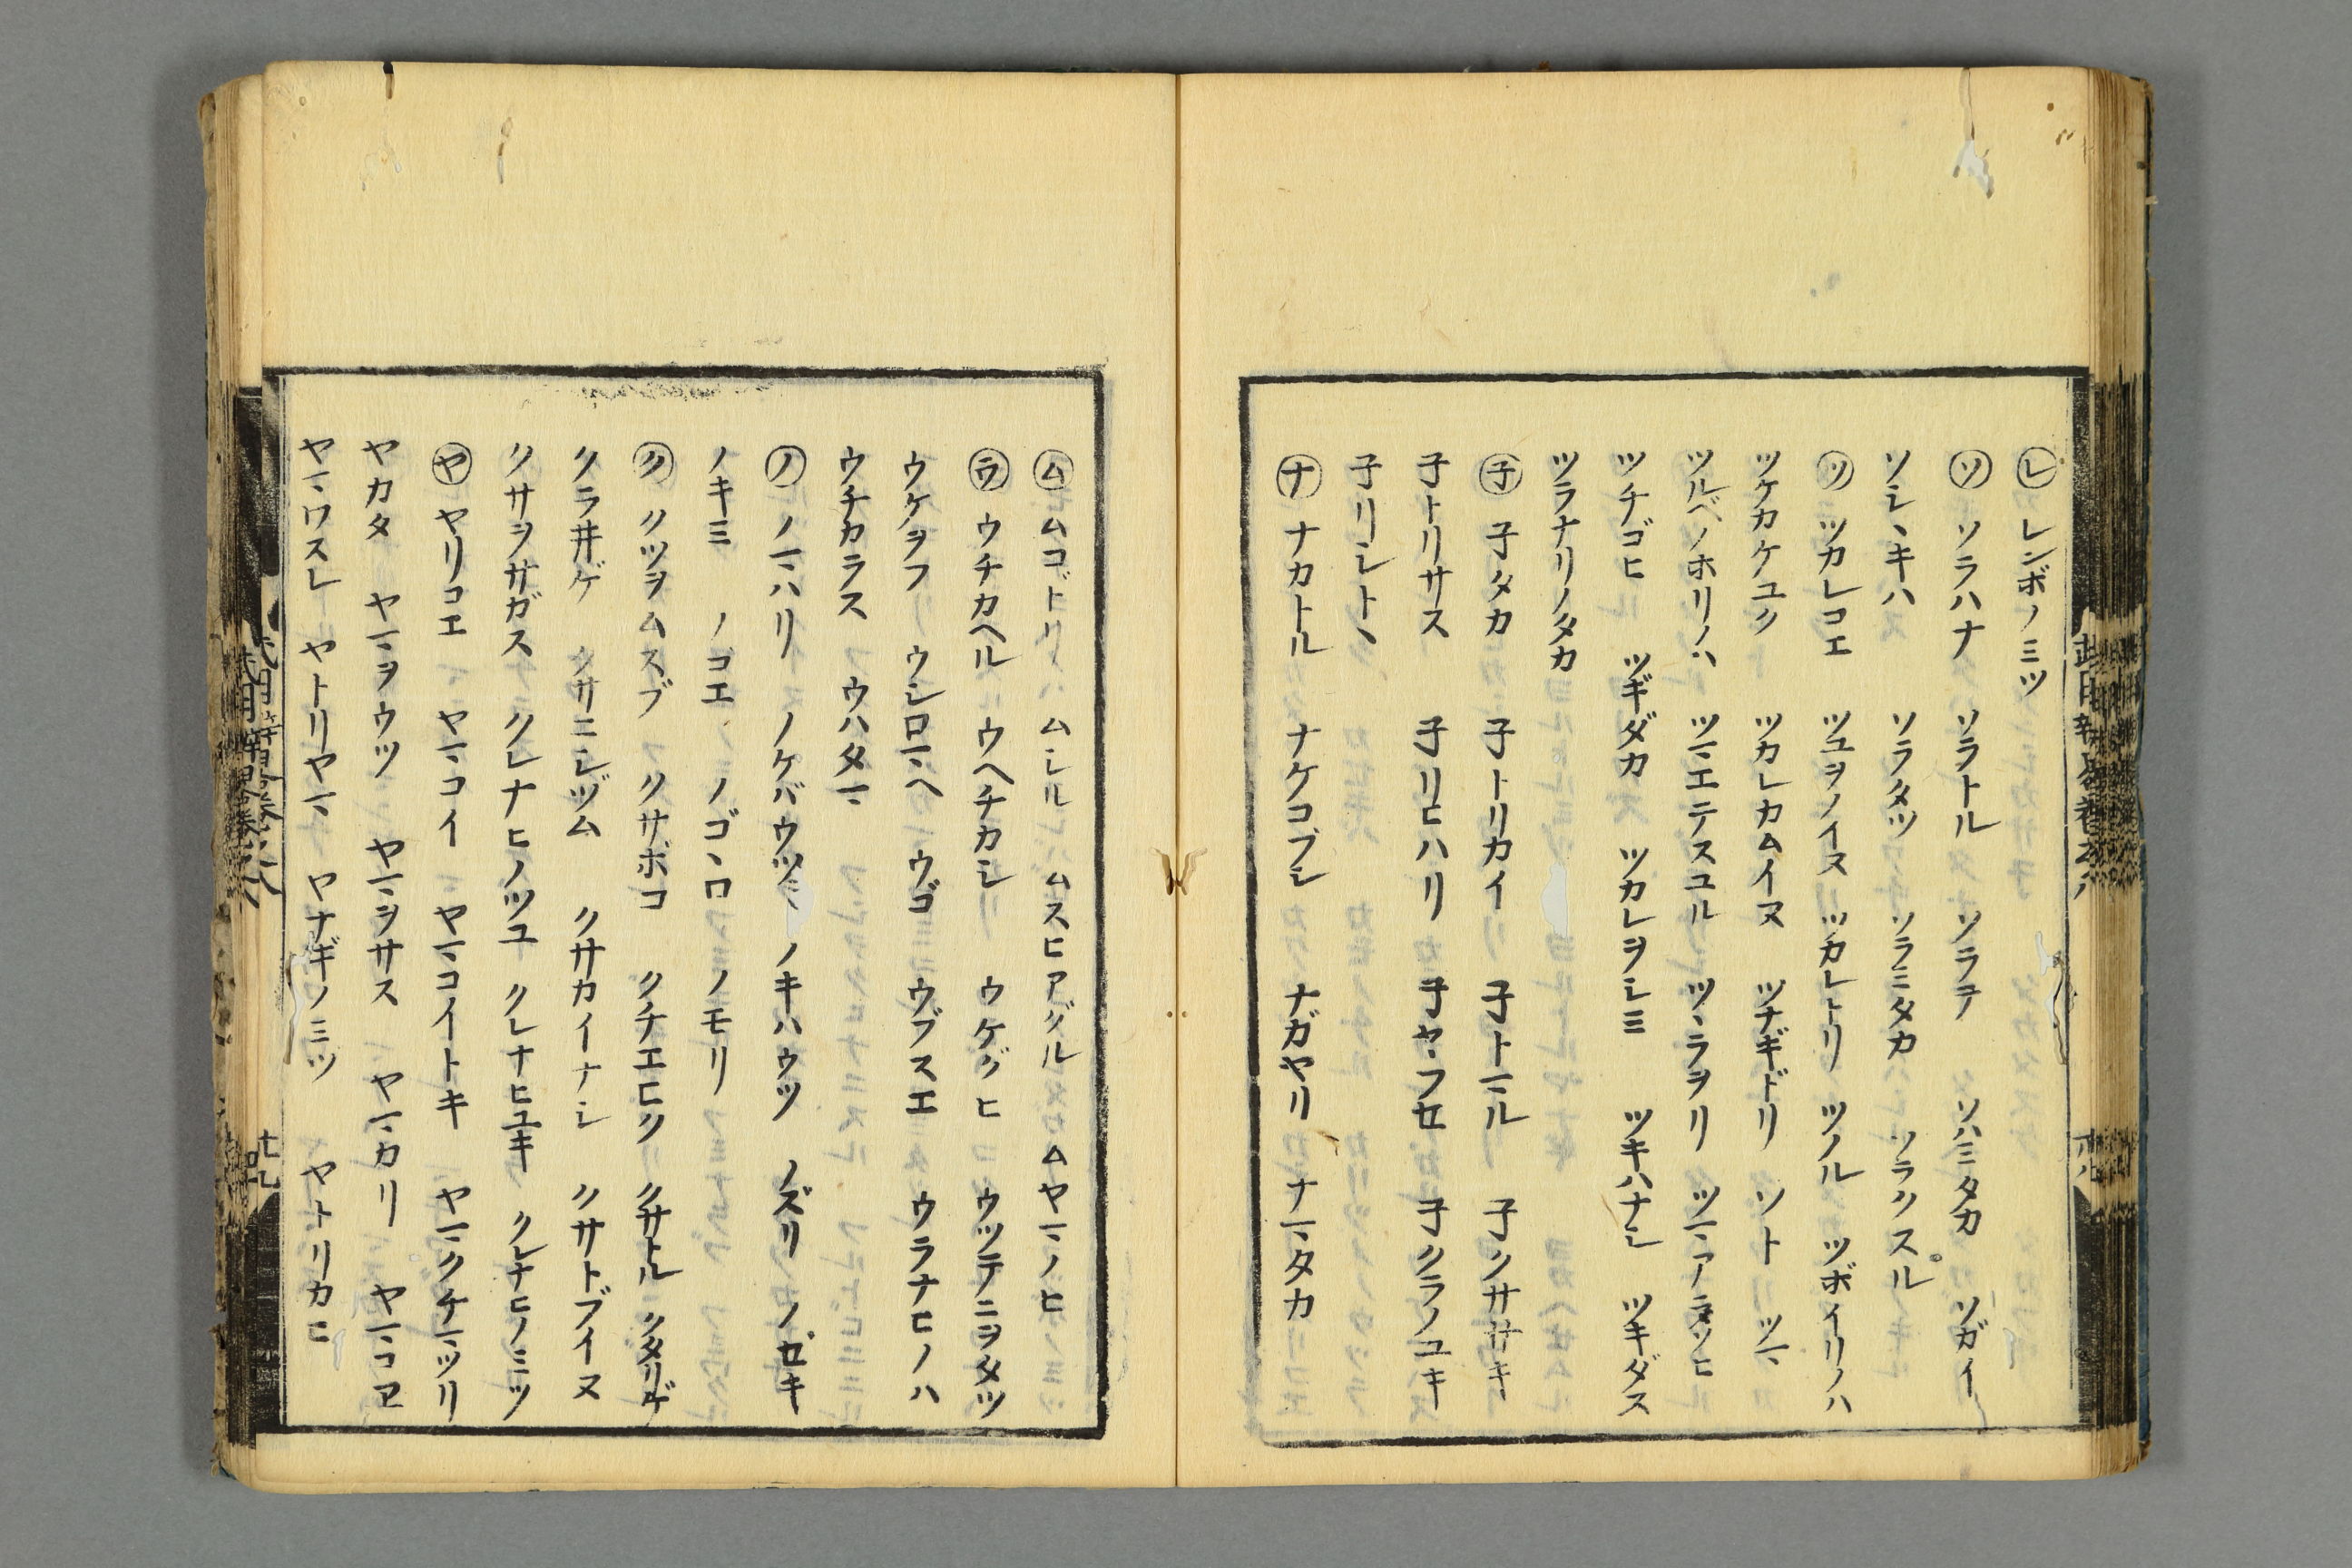 レ レンボノミツ
ソ ソラハナ ソラトル ソラヲ ソハミタカ ソガイ
ソレヽキハ ソラタツ ソラミタカ ソラクスル
ツ ツカレコエ ツユヲノイヌ ツカレトリ ツノル ツボイリノハ
ツケカケユク ツカレカムイヌ ツナギドリ ソト ツマ
ツルベノホリノハ ツマエテスユル ツヽラヲリ ツマアラソヒ
ツチゴヒ ツギダカ ツカレヲシミ ツキハナシ ツキダス
ツラナリノタカ
子 子タカ 子トリカイ 子トマル 子クササキ
子トリサス 子リヒハリ 子ヤフセ 子クラノユキ
子リシトヽ
ナ ナカトル ナケコブシ ナガヤリ ナマタカ
ム ムコドク ムシル ムスヒアグル ムヤマノヒ
ウ ウチカヘル ウヘチカシ ウケグヒ ウツテニヲタツ
ウケヲフ ウシロマヘ ウゴ ウブスエ ウラナヒノハ
ウチカラス ウハタマ
ノ ノマハリ ノケバウツ ノキハウツ ノズリ ノゼキ
ノキミ ノコエ ノゴヽロ ノモリ
ク クツヲムスブ クサボコ クチエヒク クサトル クタリザ
クラ井ゲ クサニシヅム クサカイナシ クサトブイヌ
クサヲサガス クレナヒノツユ クレナヒユキ クレナヒノミツ
ヤ ヤリコエ ヤマコイ ヤマコイトキ ヤマクチマツリ
ヤカタ ヤマヲウツ ヤマヲサス ヤマカリ ヤマコヱ
ヤマワスレ ヤトリヤマ ヤナギノミツ ヤトリカヒ